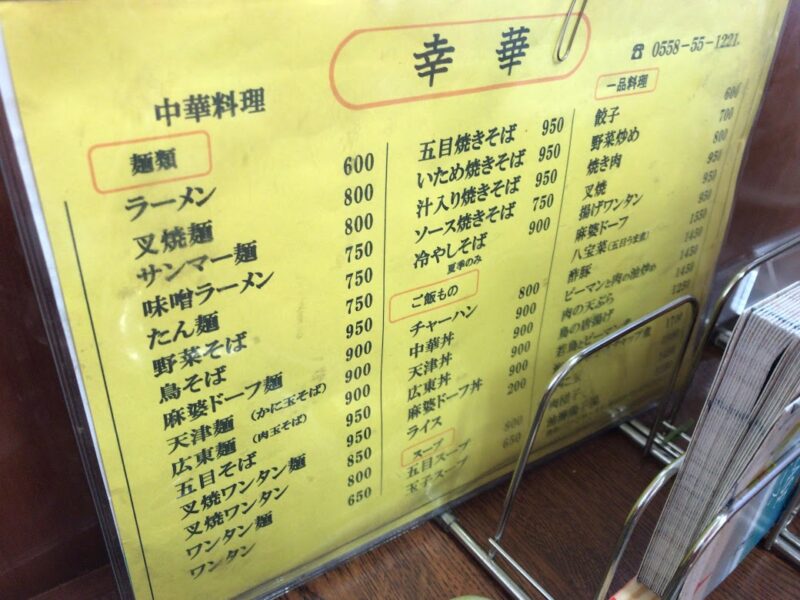 幸華
☎ 0558-55-1221
中華料理
麺類
ラーメン 600
叉焼麺 800
サンマー麺 800
味噌ラーメン 750
たん麺 750
野菜そば 750
鳥そば 950
麻婆ドーフ麺 900
天津麺 (かに玉そば) 900
広東麺 (肉玉そば) 900
五目そば 950
叉焼ワンタン麺 950
叉焼ワンタン 850
ワンタン麺 800
ワンタン 650
五目焼きそば 950
いため焼きそば 950
汁入り焼きそば 950
ソース焼きそば 750
冷やしそば 900
夏季のみ
ご飯もの
チャーハン 800
中華丼 900
天津丼 900
広東丼 900
麻婆ドーフ丼 900
ライス 200
スープ
五目スープ 800
玉子スープ 650
一品料理
餃子 600
野菜炒め 700
焼き肉 800
叉焼 950
揚げワンタン 950
麻婆ドーフ 950
八宝菜(五目うま煮) 1550
酢豚 1450
ピーマンと肉の油炒め 1450
肉の天ぷら 1450
鳥の唐揚げ 1250